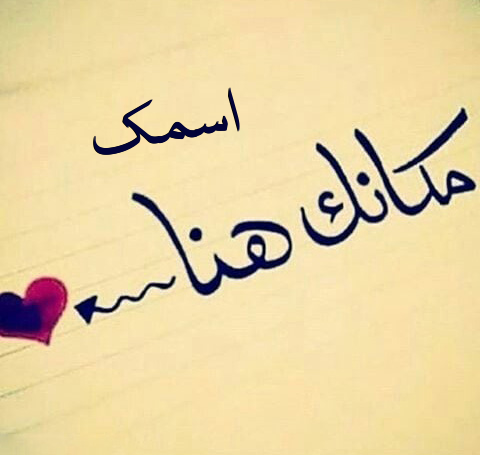 اسمک
مكانك هنا